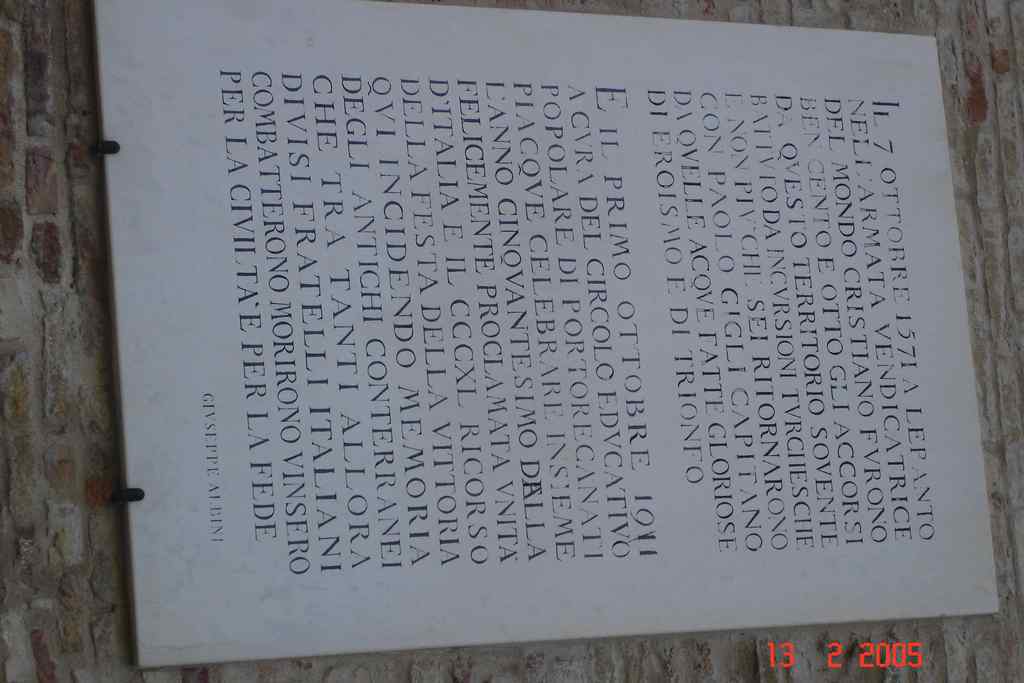 IL 7 OTTOBRE 1571 A LEPANTO
NELL'ARMATA VENDICATRICE
DEL MONDO CRISTIANO FVRONO
BEN CENTO E OTTO GLI ACCORSI
DA QVESTO TERRITORIO SOVENTE
BATTVTO DA INCVRSIONI TVRCHESCHE
E NON PIV' CHE SEI RITORNARONO
CON PAOLO GIGLI CAPITANO
DA QVELLE ACQVE FATTE GLORIOSE
DI EROISMO E DI TRIONFO
E IL PRIMO OTTOBRE 1911
A CVRA DEL CIRCOLO EDVCATIVO
POPOLARE DI PORTORECANATI
PIACQVE CELEBRARE INSIEME
L'ANNO CINQVANTESIMO DALLA
FELICEMENTE PROCLAMATA VNITA'
D'ITALIA E IL CCCXL RICORSO
DELLA FESTA DELLA VITTORIA
QVI INCIDENDO MEMORIA
DEGLI ANTICHI CONTERRANEI
CHE TRA TANTI ALLORA
DIVISI FRATELLI ITALIANI
COMBATTERONO MORIRONO VINSERO
PER LA CIVILTA' E PER LA FEDE
GIVSEPPE ALBINI
13 2 2005